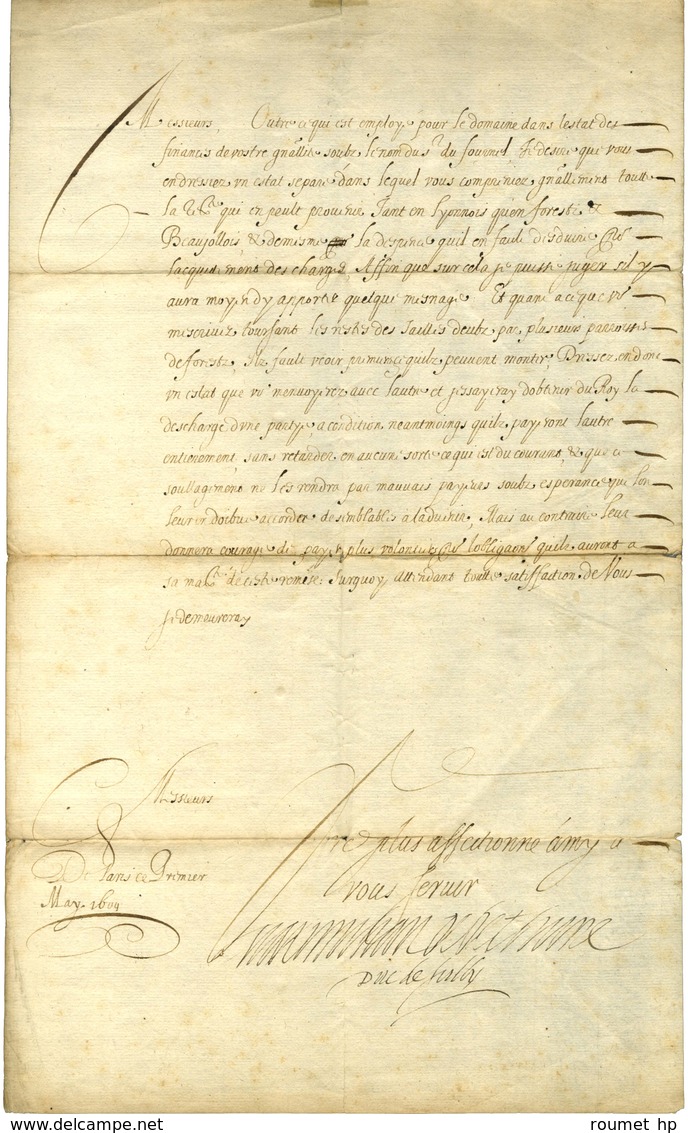 Messieurs, Outre ce qui est employe pour le domaine dans lestat des
finances de vostre gnallite soubz le nom du sr du fournel Je desire que vous
en dressiez vn estat separe dans lequel vous compreniez gnallement toutte
la qui en peult provenir Tant en lyonnois quen forestz &
Beaujollois, & de mesme la despence quil en fault desduire
lacquictement des charges, Affin que sur cela je puisse juger sil y
aura moyen dy apporter quelque mesnage Et quant a ce que vo
mescrivez touchant les restes des Tailles deubz par plusieurs parroisses
de forestz, Il fault veoir premier ce quilz peuvent monter, Dressez en donc
vn estat que vo menvoyerez avec lautre et jessayeray dobtenir du Roy la
descharge dvne partye a condition neantmoings quilz payeront lautre
entierement sans retarder en aucune sorte ce qui est du courant, & que ce
soullagement ne les rendra pas mauvais payeurs soubz esperance que lon
leur en doibve accorder de semblables a ladvenir, Mais au contraire leur
donnera courage de payer plus volontiers lobligaon quilz auront a
sa mate de ceste remise. Surquoy attendant toutte satisfaction de Vous
Je demeureray
Messieurs
De Paris ce Premier
May. 1609
Vre plus affectionne amy a
vous servir
Maximilian de Bethune
Duc de Sully
roumet hp